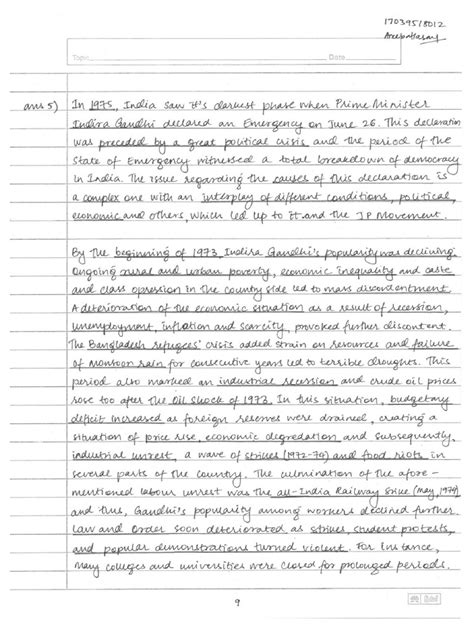 17039518012
Topic
Date
ans 5)
In 1975, India saw it's darkest phase when Prime Minister
Indira Gandhi declared an Emergency on June 26. This declaration
was preceded by a great political crisis and the period of the
State of Emergency witnessed a total breakdown of democracy
in India. The issue regarding the causes of this declaration is
a complex one with an interplay of different conditions, political,
economic and others, which led up to it and the JP Movement.
By the beginning of 1973, Indira Gandhi's popularity was declining.
Ongoing rural and urban poverty, economic inequality and caste
and class opression in the country side led to mass discontentment.
A deterioration of the economic situation as a result of recession,
unemployment, inflation and scarcity, provoked further discontent.
The Bangladesh refugees' crisis added strain on resources and failure
of monsoon rain for consecutive years led to terrible droughts. This
period also marked an industrial recession and crude oil prices
rose too after the Oil Shock of 1973. In this situation, budgetary
deficit increased as foreign reserves were drained, creating a
situation of price rise, economic degredation and subsequently,
industrial unrest, a wave of strikes (1972-74) and food riots in
several parts of the country. The culmination of the afore-
mentioned labour unrest was the all-India Railway Strike (May, 1974)
and thus, Gandhi's popularity among workers declined further.
Law and Order soon deteriorated as strikes, student protests,
and popular demonstrations turned violent. For instance,
many colleges and universities were closed for prolonged periods.
9